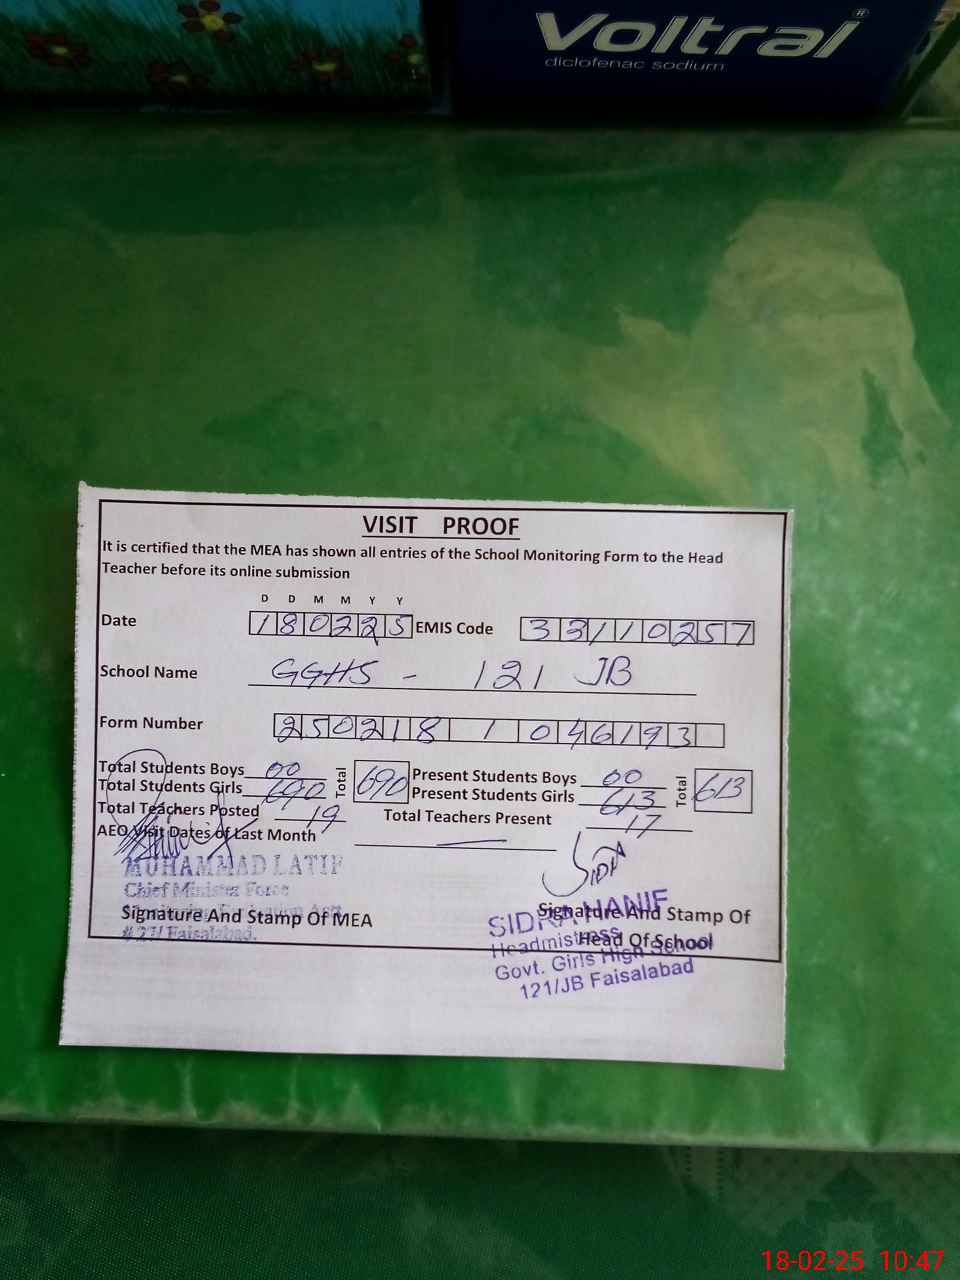 Voltral®
diclofenac sodium
VISIT PROOF
It is certified that the MEA has shown all entries of the School Monitoring Form to the Head
Teacher before its online submission
D D M M Y Y
Date 180225 EMIS Code 33110257
School Name GGHS - 121 JB
Form Number 250218 1 046193
Total Students Boys 00 Total 690 Present Students Boys 00 Total 613
Total Students Girls 690 Present Students Girls 613
Total Teachers Posted 19 Total Teachers Present 17
AEO Visit Dates of Last Month —
SIDRA
MUHAMMAD LATIF
Chief Minister Force
Signature And Stamp Of MEA
Faisalabad.
Signature And Stamp Of
Head Of School
SIDRA HANIF
Headmistress
Govt. Girls High School
121/JB Faisalabad
18-02-25 10:47